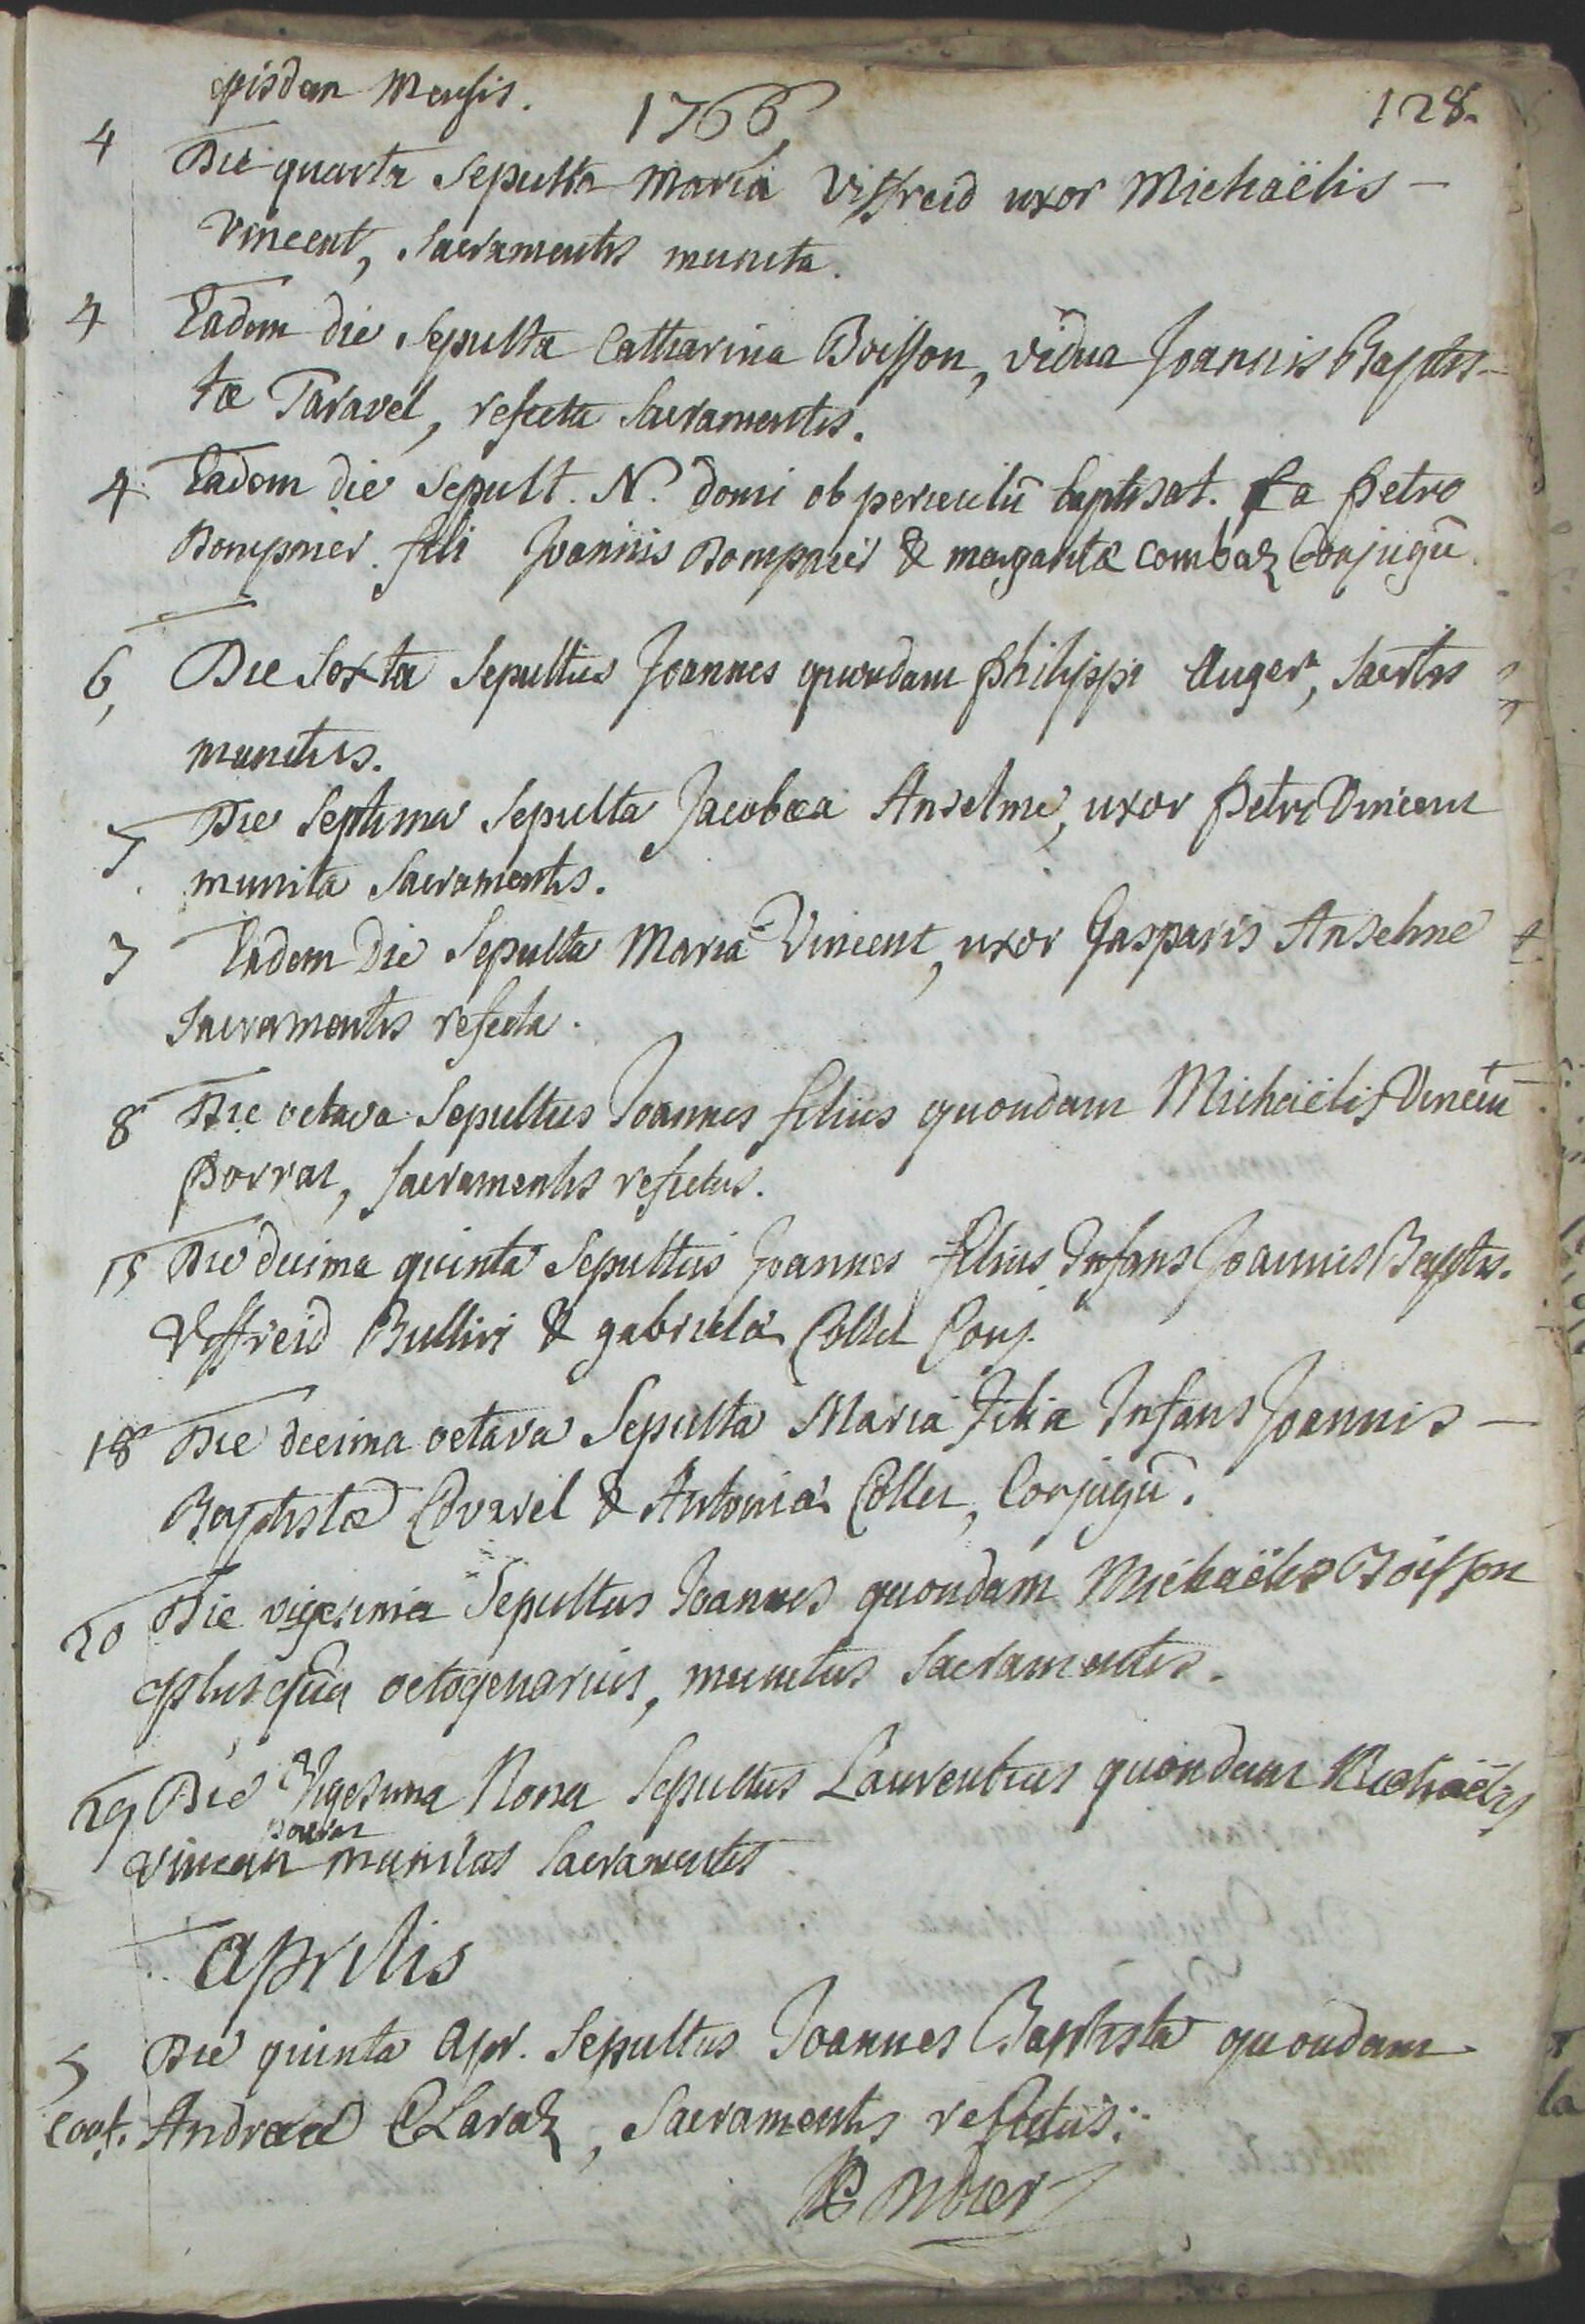 ejusdem Mensis. 1766 128.
4 Die quarta Sepulta Maria Viffreid uxor Michaëlis -
Vincent, Sacramentis munita.
4 Eadem die Sepulta Catharina Boisson, vidua Joannis Baptis-
tæ Taravel, refecta Sacramentis.
4 Eadem die Sepult. N. domi ob periculū baptisat. a petro
Bompnier. fili Joannis Bompnier & margaritæ Combaz Conjugū.
6, Die Sexta Sepultus Joannes quondam philippi Auger, Sacrtis
munitus.
7 Die Septima Sepulta Jacobæa Anselme, uxor petri Vincent
munita Sacramentis.
7 Eadem Die Sepulta Maria Vincent, uxor Gasparis Anselme
Sacramentis refecta.
8 Die octava Sepultus Joannes filius quondam Michaëlis Vincen
porraz, Sacramentis refectus.
15 Die decima quinta Sepultus Joannes filius Infans Joannis Baptis.
Viffreid Bulliri & gabrielæ Collet Conj.
18 Die decima octava Sepulta Maria filia Infans Joannis -
Baptistæ Covarel & Antoniæ Collet, Conjugū.
20 Die vigesima Sepultus Joannes quondam Michaëlis Boisson
plusquā octogenarius, munitus Sacramentis.
29 Die Vigesima Nona Sepultus Laurentius quondam Michaëlis
porraz
vincen munitus Sacramentis
aprilis
5 Die quinta apr. Sepultus Joannes Baptista quondam
Andreæ Claraz, Sacramentis refectus.